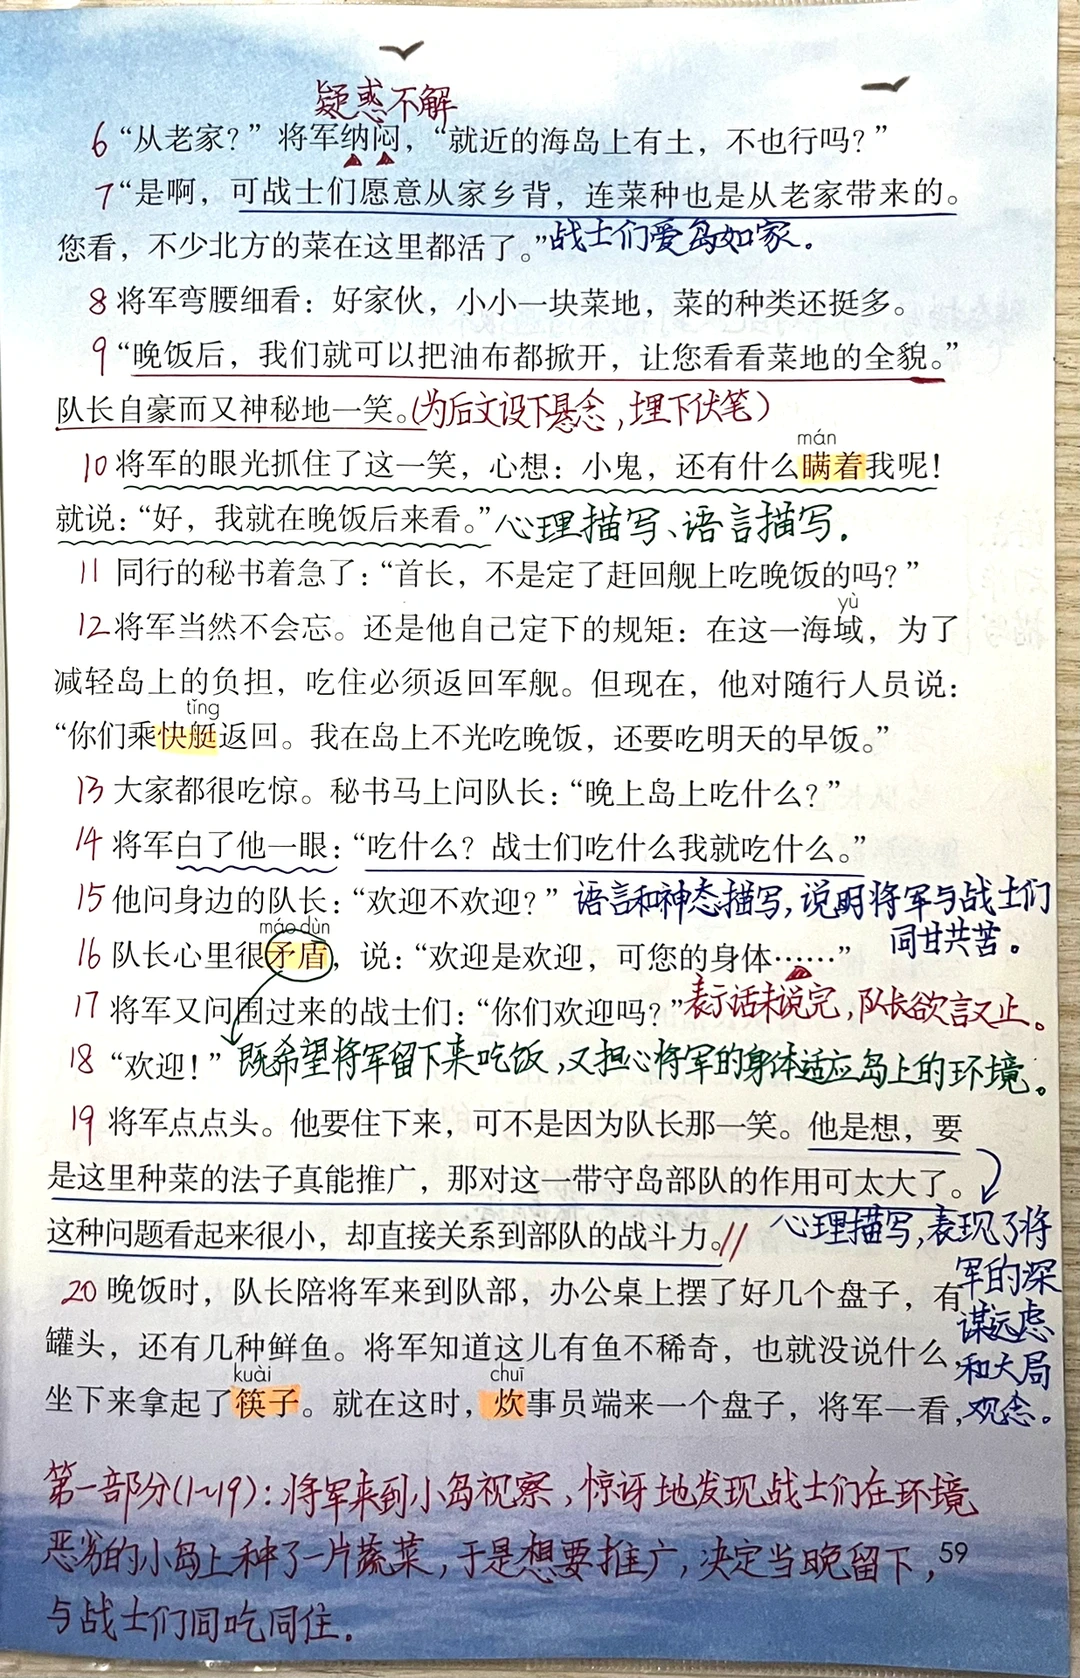 疑惑不解
6 “从老家？”将军纳闷，“就近的海岛上有土，不也行吗？”
7 “是啊，可战士们愿意从家乡背，连菜种也是从老家带来的。
您看，不少北方的菜在这里都活了。”战士们爱岛如家。
8 将军弯腰细看：好家伙，小小一块菜地，菜的种类还挺多。
9 “晚饭后，我们就可以把油布都掀开，让您看看菜地的全貌。”
队长自豪而又神秘地一笑。(为后文设下悬念，埋下伏笔)
mán
10 将军的眼光抓住了这一笑，心想：小鬼，还有什么瞒着我呢！
就说：“好，我就在晚饭后来看。”心理描写、语言描写。
11 同行的秘书着急了：“首长，不是定了赶回舰上吃晚饭的吗？”
yù
12 将军当然不会忘。还是他自己定下的规矩：在这一海域，为了
减轻岛上的负担，吃住必须返回军舰。但现在，他对随行人员说：
tǐng
“你们乘快艇返回。我在岛上不光吃晚饭，还要吃明天的早饭。”
13 大家都很吃惊。秘书马上问队长：“晚上岛上吃什么？”
14 将军白了他一眼：“吃什么？战士们吃什么我就吃什么。”
15 他问身边的队长：“欢迎不欢迎？”语言和神态描写，说明将军与战士们
同甘共苦。
máo dùn
16 队长心里很矛盾，说：“欢迎是欢迎，可您的身体……”
17 将军又问围过来的战士们：“你们欢迎吗？”表示话未说完，队长欲言又止。
18 “欢迎！”既希望将军留下来吃饭，又担心将军的身体适应岛上的环境。
19 将军点点头。他要住下来，可不是因为队长那一笑。他是想，要
是这里种菜的法子真能推广，那对这一带守岛部队的作用可太大了。
这种问题看起来很小，却直接关系到部队的战斗力。//
心理描写，表现了将
军的深
谋远虑
和大局
观念。
20 晚饭时，队长陪将军来到队部，办公桌上摆了好几个盘子，有
罐头，还有几种鲜鱼。将军知道这儿有鱼不稀奇，也就没说什么，
kuài chuī
坐下来拿起了筷子。就在这时，炊事员端来一个盘子，将军一看，
第一部分(1~19)：将军来到小岛视察，惊讶地发现战士们在环境
恶劣的小岛上种了一片蔬菜，于是想要推广，决定当晚留下，
59
与战士们同吃同住.